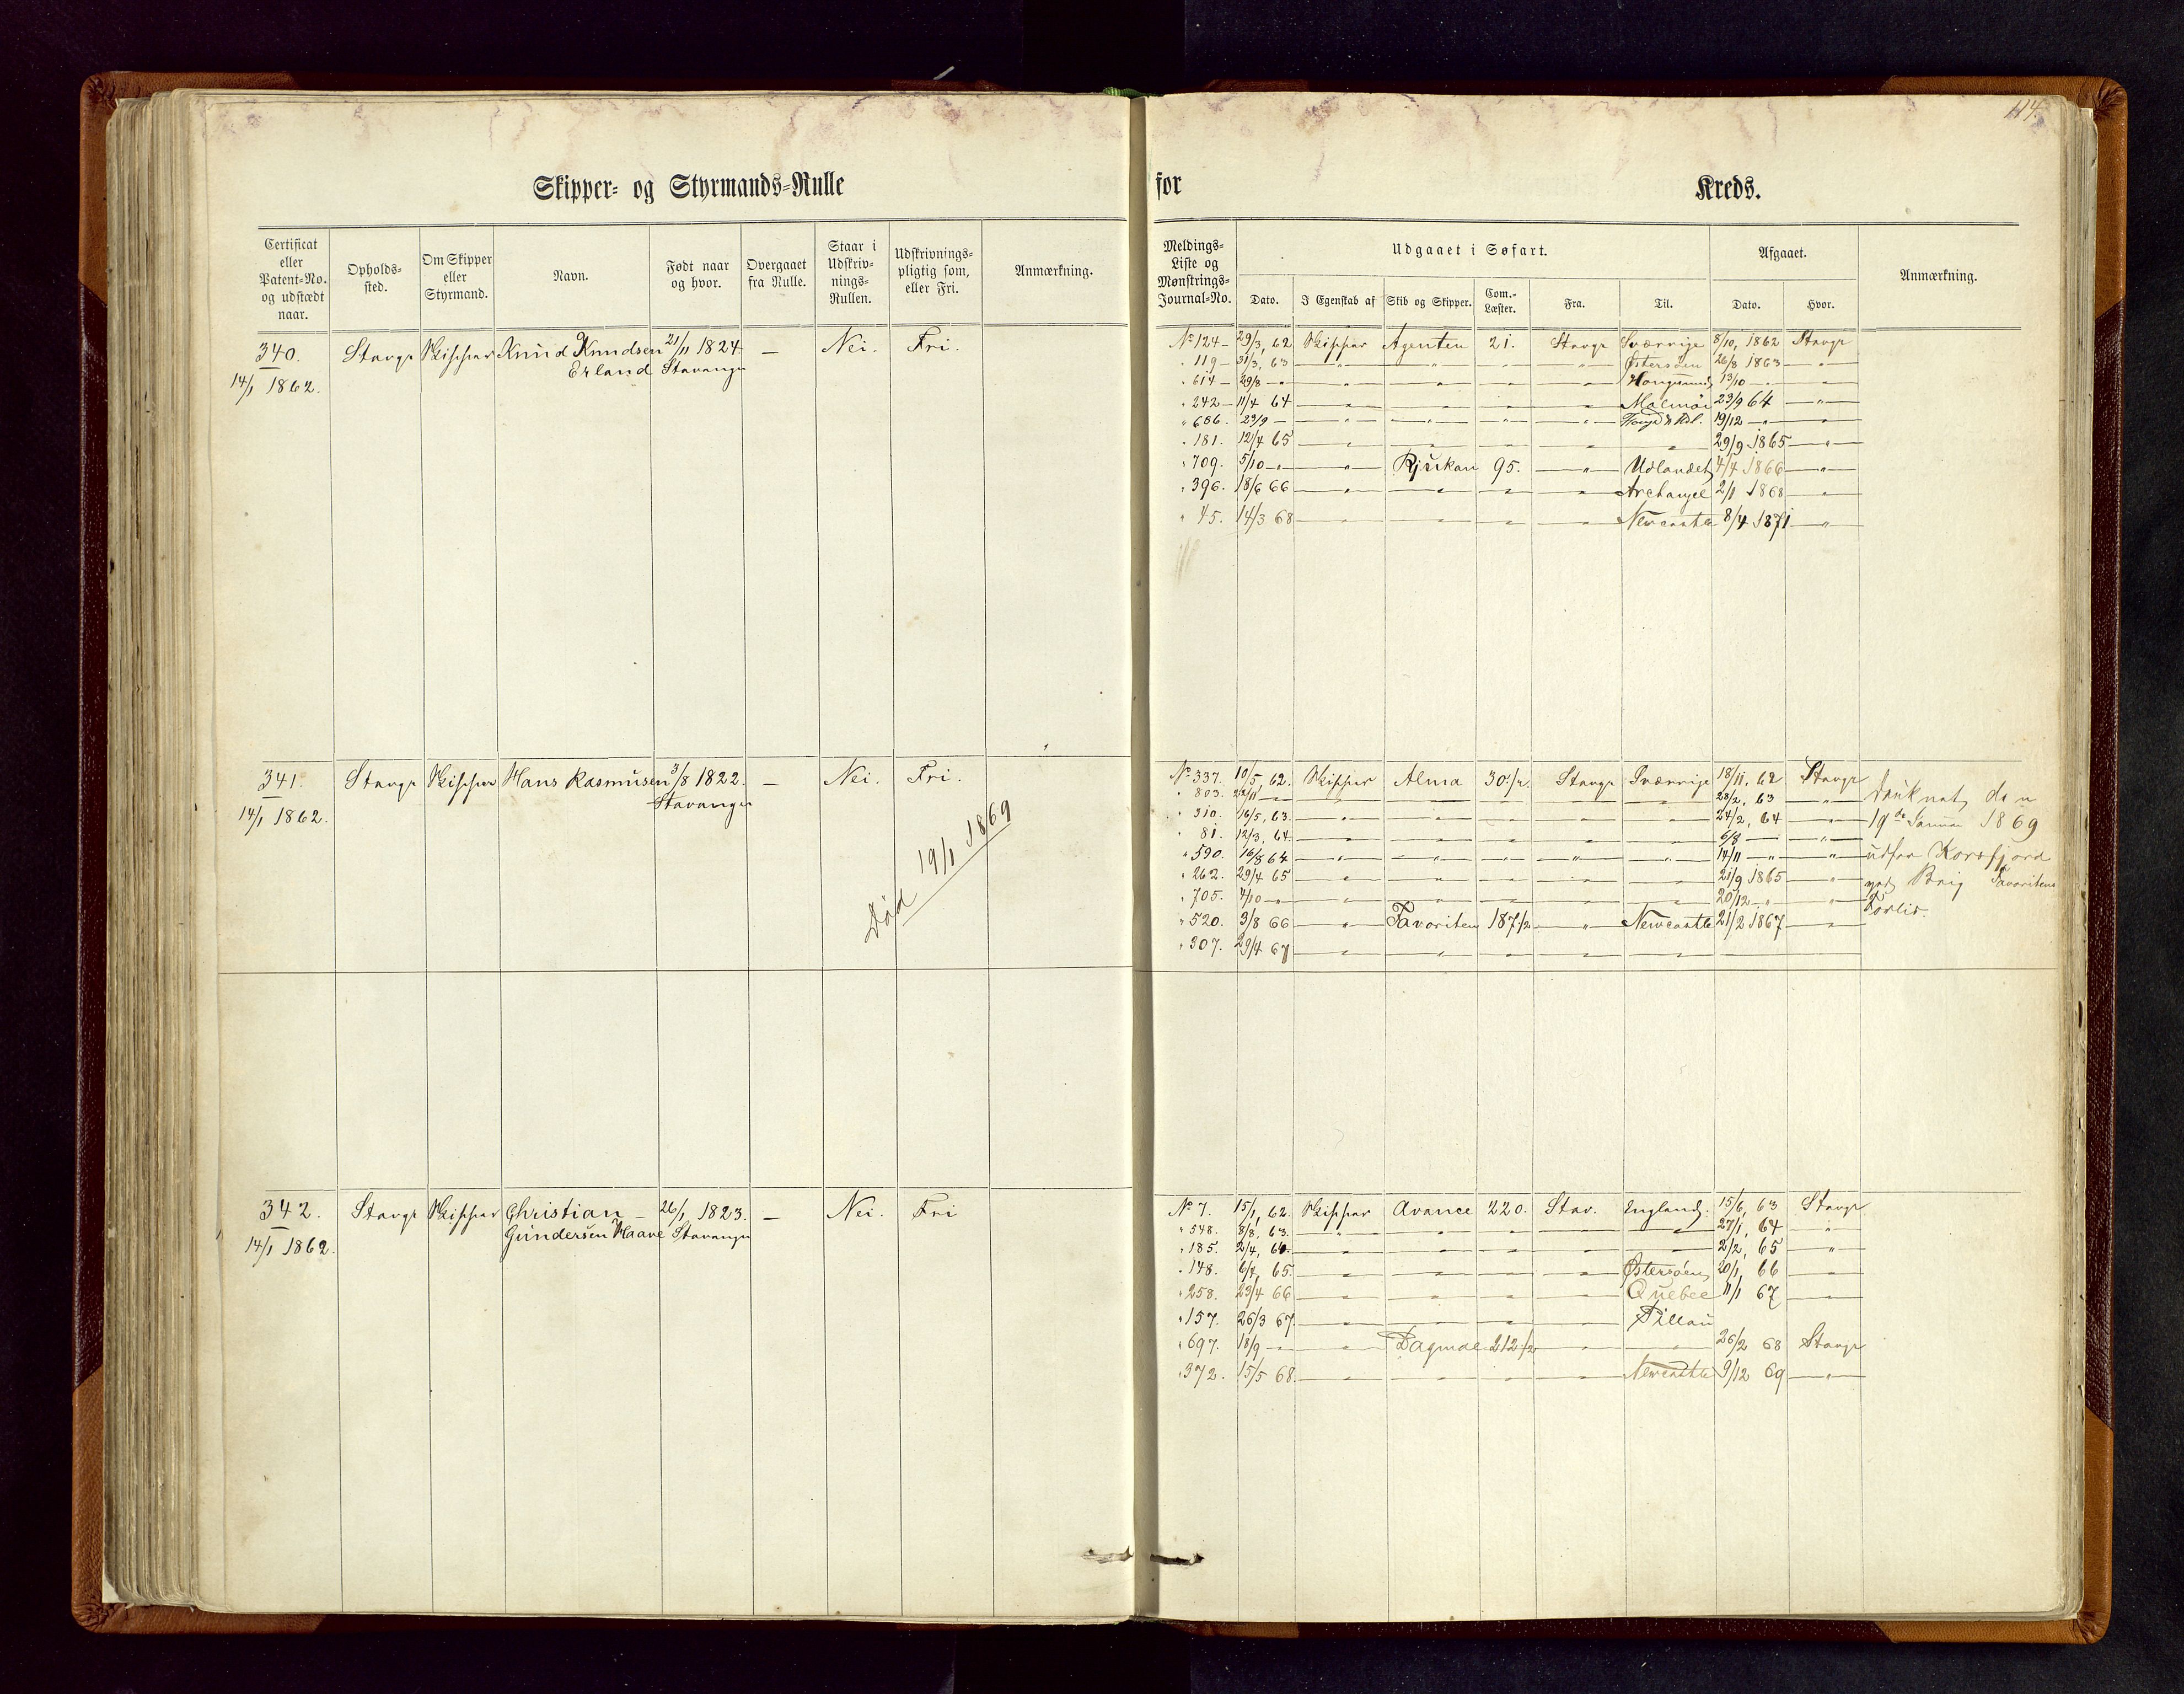 114.
Skipper- og Styrmands-Rulle
for Kreds.
Certificat eller Patent-No. og udstædt naar.
Opholds-sted.
Om Skipper eller Styrmand.
Navn.
Født naar og hvor.
Overgaaet fra Rulle.
Staar i Udskriv-nings-Rullen.
Udskrivnings-pligtig som, eller Fri.
Anmærkning.
Meldings-Liste og Mønstrings-Journal-No.
Udgaaet i Søfart.
Dato.
I Egenskab af
Skib og Skipper.
Com.-Læster.
Fra.
Til.
Afgaaet.
Dato.
Hvor.
Anmærkning.
340. Stavgr Skipper Knud Knudsen 21/11 1824 — Nei. Fri.
14/1 1862. Erland Stavanger
No 124 — 29/3, 62 Skipper Agenten 21. Stavgr Sværrige 8/10, 1862 Stavgr
" 119 — 31/3, 63 — " — " — " — " Østersøen 26/8 1863 — " —
" 614 — 29/8 — " — " — " — " — " 13/10 — " — " —
" 242 — 11/4 64 — " — " — " — " Malmøe 23/9 64 — " —
" 686. 23/9 — " — " — " — " 19/12 — " — " —
" 181. 12/4 65 — " — " — " — " — " 29/9 1865 — " —
" 709. 5/10 — " — " Rjukan 95. — " Udlandet 4/4 1866 — " —
" 396. 18/6 66 — " — " — " — " Archangel 2/1 1868 — " —
" 45. 14/3 68 — " — " — " — " Newcastle 8/4 1871 — " —
341. Stavgr Skipper Hans Rasmusen 3/8 1822. — Nei. Fri.
14/1 1862. Stavanger
Død 19/1 1869
No 337. 10/5, 62. Skipper Alma 30 1/2. Stavgr Sværrige 18/11, 62 Stavgr
" 803. 22/11 — " — " — " — " — " 28/2, 63 — " —
" 310. 16/5, 63. — " — " — " — " — " 24/2, 64 — " —
" 81. 12/3, 64. — " — " — " — " — " 6/8 — " — " —
" 590. 16/8 64 — " — " — " — " — " 14/11 — " — " —
" 262. 29/4 65 — " — " — " — " — " 21/9 1865 — " —
" 705. 4/10 — " — " — " — " — " — " 20/12 — " — " —
" 520. 3/8 66 — " Favoriten 187 1/2 — " Newcastle 21/2 1867 — " —
" 307. 29/4 67 — " — " — " — " — " —
druknet den
19de Januar 1869
udfor Korsfjord
ved Brig Favoritens
Forlis.
342. Stavgr Skipper Christian — 26/1, 1823. — Nei. Fri
14/1 1862. Gundersen Haave Stavanger
No 7. 15/1, 62. Skipper Avance 220. Stav. England. 15/6, 63 Stavgr
" 548. 8/8, 63. — " — " — " — " — " 27/1, 64 — " —
" 185. 2/4, 64. — " — " — " — " — " 2/2, 65 — " —
" 148. 6/4, 65. — " — " — " — " Østersøen 20/1 66 — " —
" 258. 23/4 66 — " — " — " — " Quebec 11/1 67 — " —
" 157. 26/3 67. — " — " — " — " Pillau
" 697. 18/9 — " — " Dagmar 212 1/2 — " — " 26/2 68 Stavgr
" 372. 15/5 68. — " — " — " — " Newcastle 9/12 69 — " —